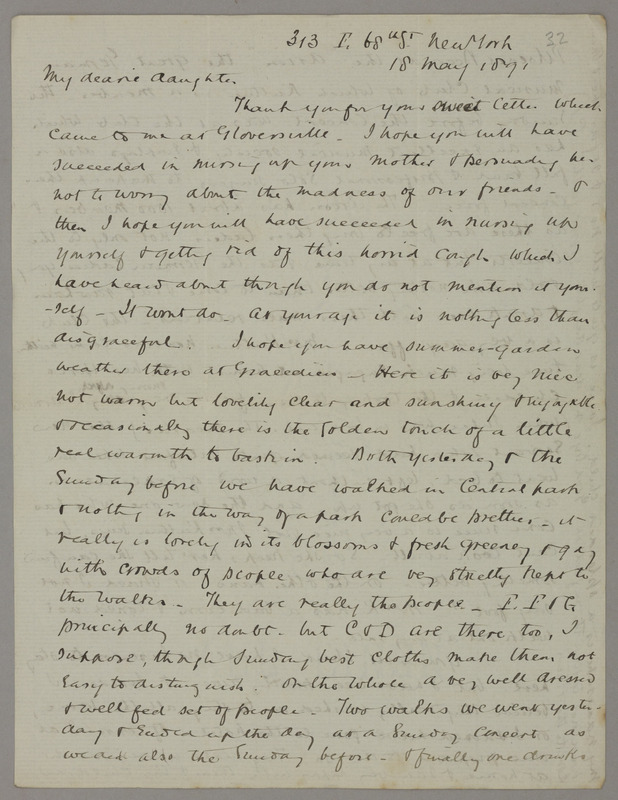 313 E. 68 St. New York 32
18 May 1891
My dearie daughter.
Thank you for your sweet letter which
came to me at Gloversville. I hope you will have
succeeded in nursing up your Mother & persuading her
not to worry about the madness of our friends - &
then I hope you will have succeeded in nursing up
yourself & getting rid of this horrid cough which I
have heard about though you do not mention it your-
-self - It wont do - At your age it is nothing less than
disgraceful. I hope you have summer-garden
weather there at Gracedieu - Here it is very nice
not warm but lovelily clear and sunshiny & enjoyable
& occasionally there is the golden touch of a little
real warmth to bask in. Both yesterday & the
Sunday before we have walked in Central park
& nothing in the way of a park could be prettier - it
really is lovely in its blossoms & fresh greenery & gay
with crowds of people who are very strictly kept to
the walks - They are really the people - E. F & G
principally no doubt - but C & D are there too, I
suppose, though Sunday best cloths make them not
easy to distinguish. On the whole a very well dressed
& well fed set of people - Two walks we went yester-
day & ended up the day at a Sunday Concert as
we did also the Sunday before - & finally one drinks